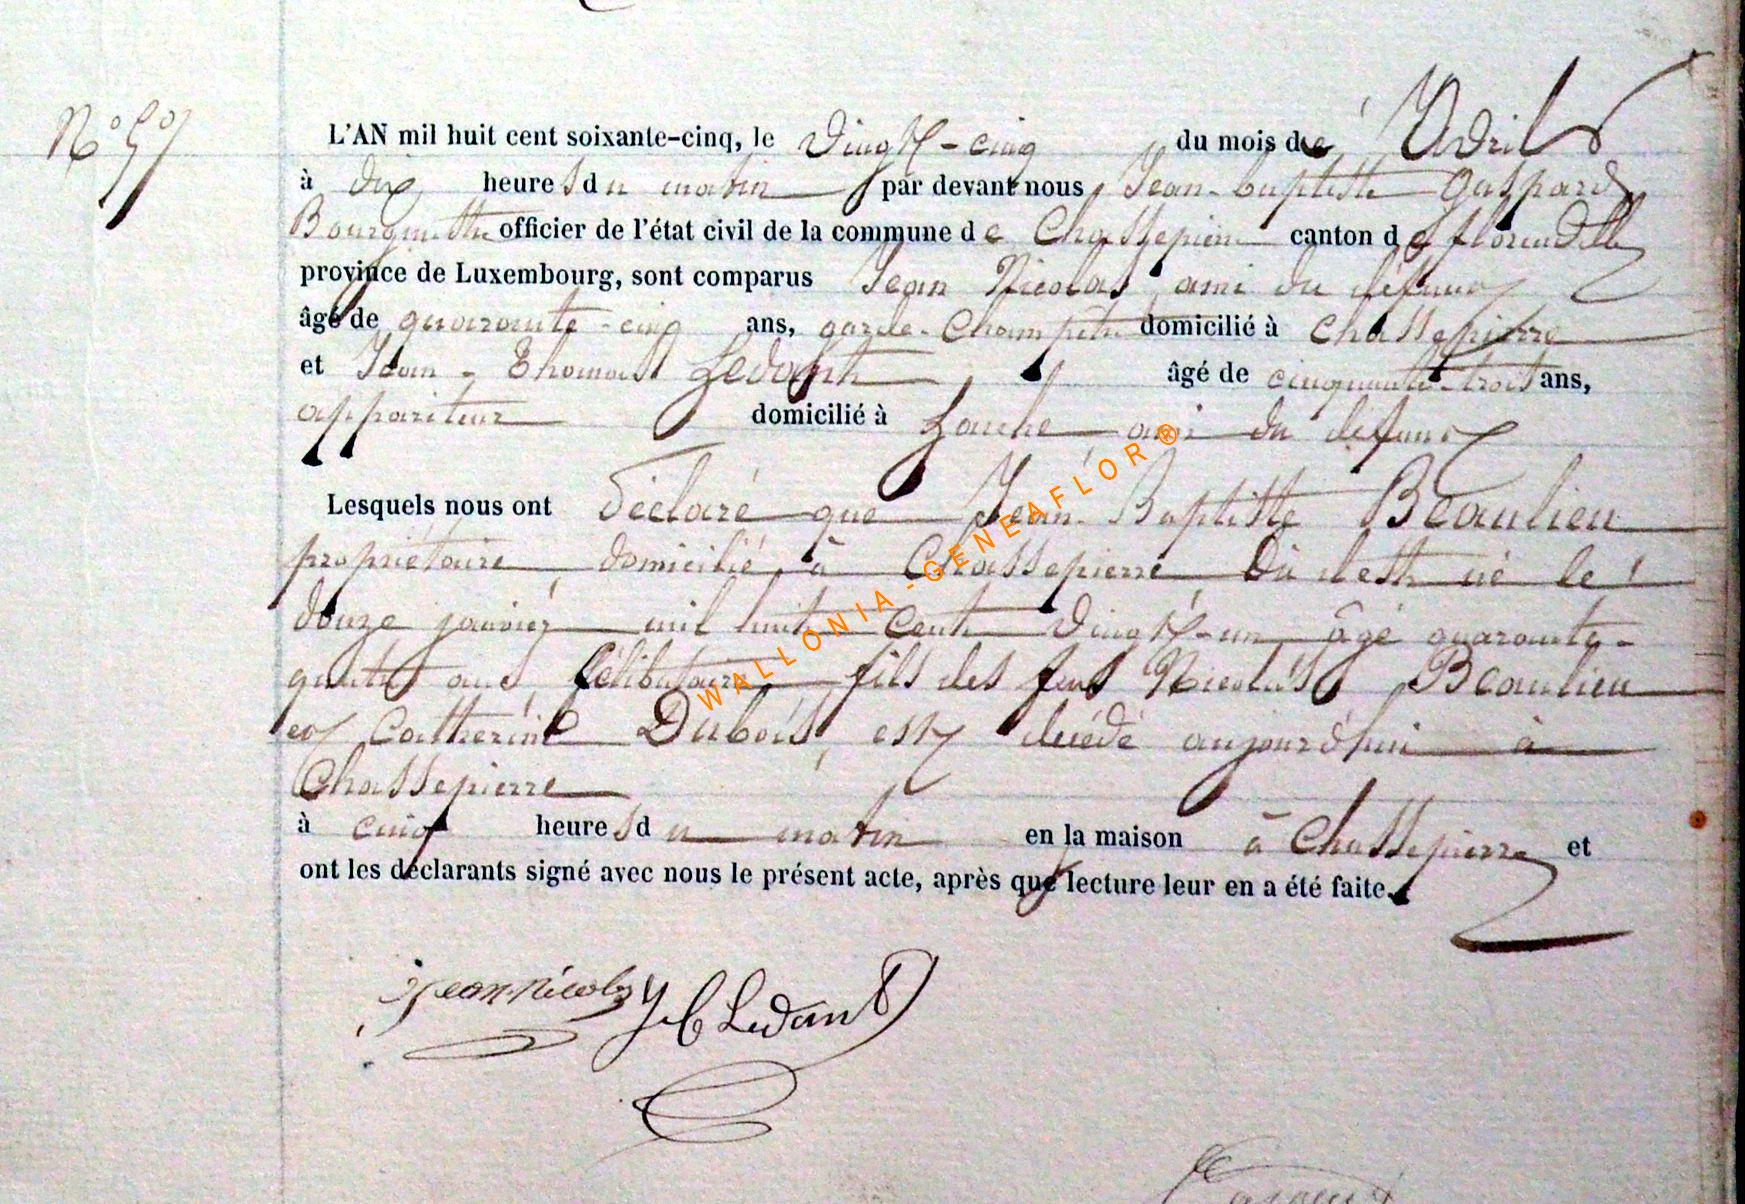 N° 5
L'AN mil huit cent soixante-cinq, le Vingt-cinq du mois de Avril
à dix heures du matin par devant nous Jean-baptiste Gaspard
officier de l'état civil de la commune de Chassepierre canton de florenville
province de Luxembourg, sont comparus Jean Nicolas, ami du défunt
âgé de quarante-cinq ans, garde-Champêtre domicilié à Chassepierre
et Jean-Thomas Ledant âgé de cinquante-trois ans,
appariteur domicilié à Laiche, ami du défunt
Lesquels nous ont déclaré que Jean-Baptiste Beaulieu
propriétaire domicilié à Chassepierre où il est né le
douze janvier mil huit cent Vingt-un, âgé quarante-
quatre ans, Célibataire fils des feus Nicolas Beaulieu
et Catherine Dubois, est décédé aujourd'hui à
Chassepierre
à cinq heures du matin en la maison à Chassepierre et
ont les déclarants signé avec nous le présent acte, après que lecture leur en a été faite.
Jean-Nicolas Ledant
WALLONIA-GENEAFLOR®